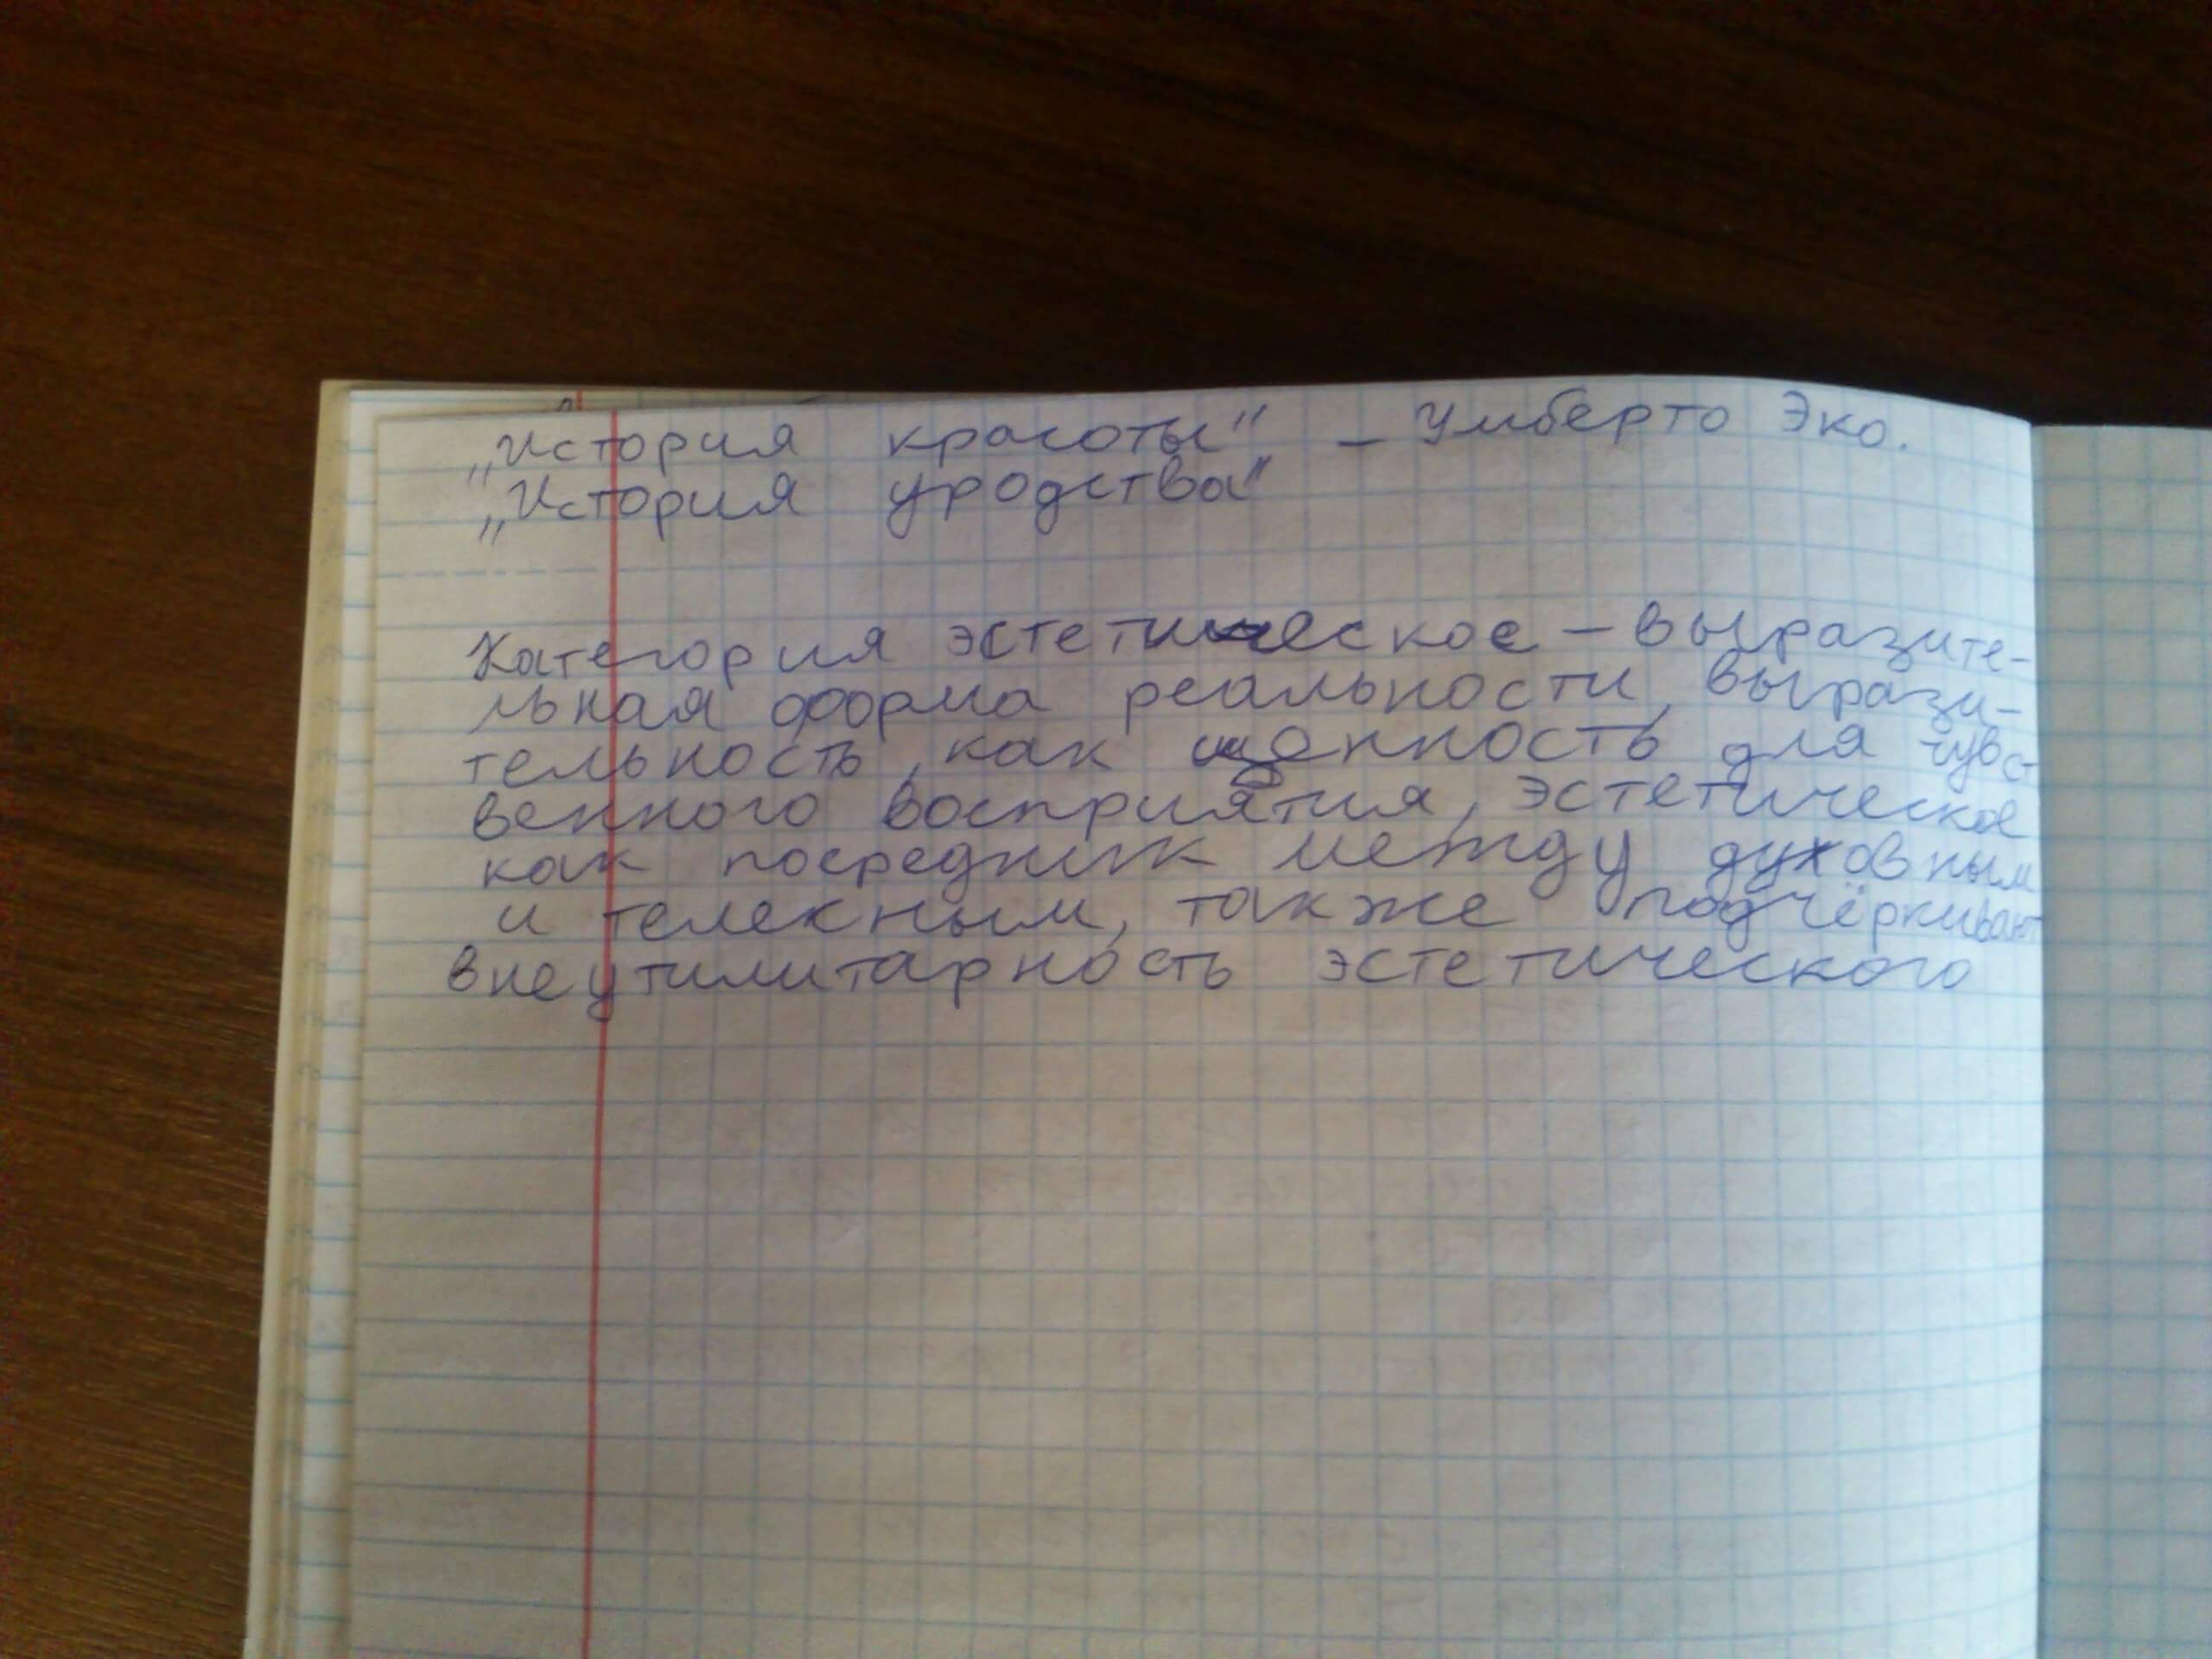 „История красоты" – Умберто Эко.
„История уродства"
Категория эстетическое – выразите-
льная форма реальности, вырази-
тельность, как ценность для чувст
венного восприятия, эстетическое
как посредник между духовным
и телекным, также подчёркивают
внеутилитарность эстетического